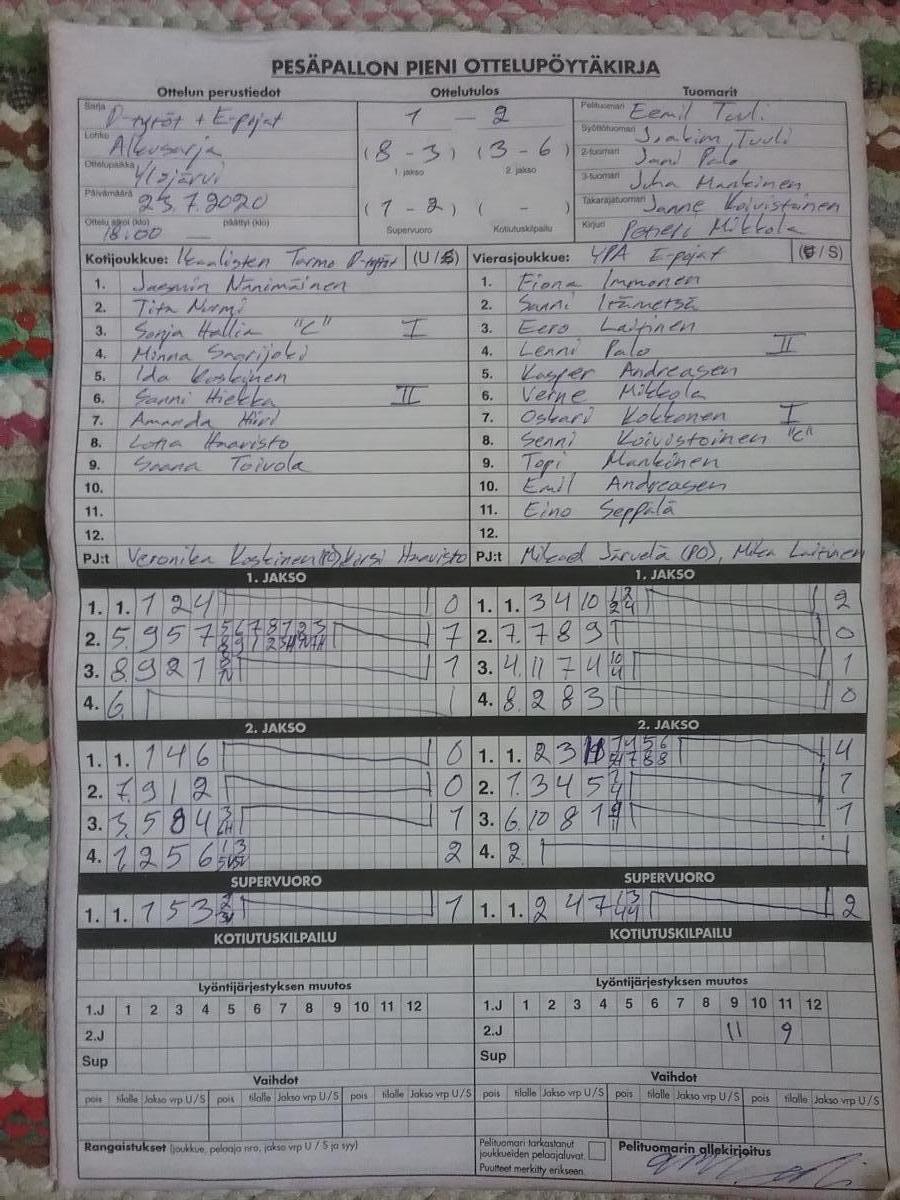 PESÄPALLON PIENI OTTELUPÖYTÄKIRJA
Ottelun perustiedot Ottelutulos Tuomarit
Sarja D-tytöt + E-pojat
Lohko Alkusarja
Ottelupaikka Ylöjärvi
Päivämäärä 23.7.2020
Ottelu alkoi (klo) 18:00 päättyi (klo) —
1 — 2
(8 - 3) (3 - 6)
1. jakso 2. jakso
(1 - 2) ( - )
Supervuoro Kotiutuskilpailu
Pelituomari Eemil Tuuli
Syöttötuomari Joakim Tuuli
2-tuomari Jani Palo
3-tuomari Juha Mankinen
Takarajatuomari Janne Koivistoinen
Kirjuri Petteri Mikkola
Kotijoukkue: Ikaalisten Tarmo D-tytöt (U/S)
1. Jasmin Nänimäinen
2. Tita Nurmi
3. Sonja Hallia "C" I
4. Minna Saarijoki
5. Ida Koskinen
6. Sanni Hiekka II
7. Amanda Hiiri
8. Lotta Haavisto
9. Saana Toivola
10.
11.
12.
PJ:t Veronika Koskinen (PO) Kirsi Haavisto
Vierasjoukkue: YPA E-pojat (U/S)
1. Fiona Immonen
2. Sanni Itämetsä
3. Eero Laitinen
4. Lenni Palo II
5. Kasper Andreasen
6. Verne Mikkola
7. Oskari Kokkonen I
8. Senni Koivistoinen "C"
9. Topi Mankinen
10. Emil Andreasen
11. Eino Seppälä
12.
PJ:t Mikael Järvelä (PO), Mika Laitinen
1. JAKSO
1. 1. 1 2 4 0
2. 5. 9 5 7 7
3. 8. 9 2 1 1
4. 6.
1. JAKSO
1. 1. 3 4 10 2
2. 7. 7 8 9 0
3. 4. 11 7 4 10 4 1
4. 8. 2 8 3 0
2. JAKSO
1. 1. 1 4 6 0
2. 7. 9 1 2 0
3. 3. 5 8 4 1
4. 1. 2 5 6 2
2. JAKSO
1. 1. 2 3 4
2. 1. 3 4 5 1
3. 6. 10 8 1 1
4. 2.
SUPERVUORO
1. 1. 1 5 3 1
SUPERVUORO
1. 1. 2 4 7 2
KOTIUTUSKILPAILU
KOTIUTUSKILPAILU
Lyöntijärjestyksen muutos
1.J 1 2 3 4 5 6 7 8 9 10 11 12
2.J
Sup
Lyöntijärjestyksen muutos
1.J 1 2 3 4 5 6 7 8 9 10 11 12
2.J 11 9
Sup
Vaihdot
pois tilalle Jakso vrp U/S pois tilalle Jakso vrp U/S pois tilalle Jakso vrp U/S
Vaihdot
pois tilalle Jakso vrp U/S pois tilalle Jakso vrp U/S pois tilalle Jakso vrp U/S
Rangaistukset (joukkue, pelaaja nro, jakso vrp U / S ja syy)
Pelituomari tarkastanut
joukkueiden pelaajaluvat.
Puutteet merkitty erikseen.
Pelituomarin allekirjoitus